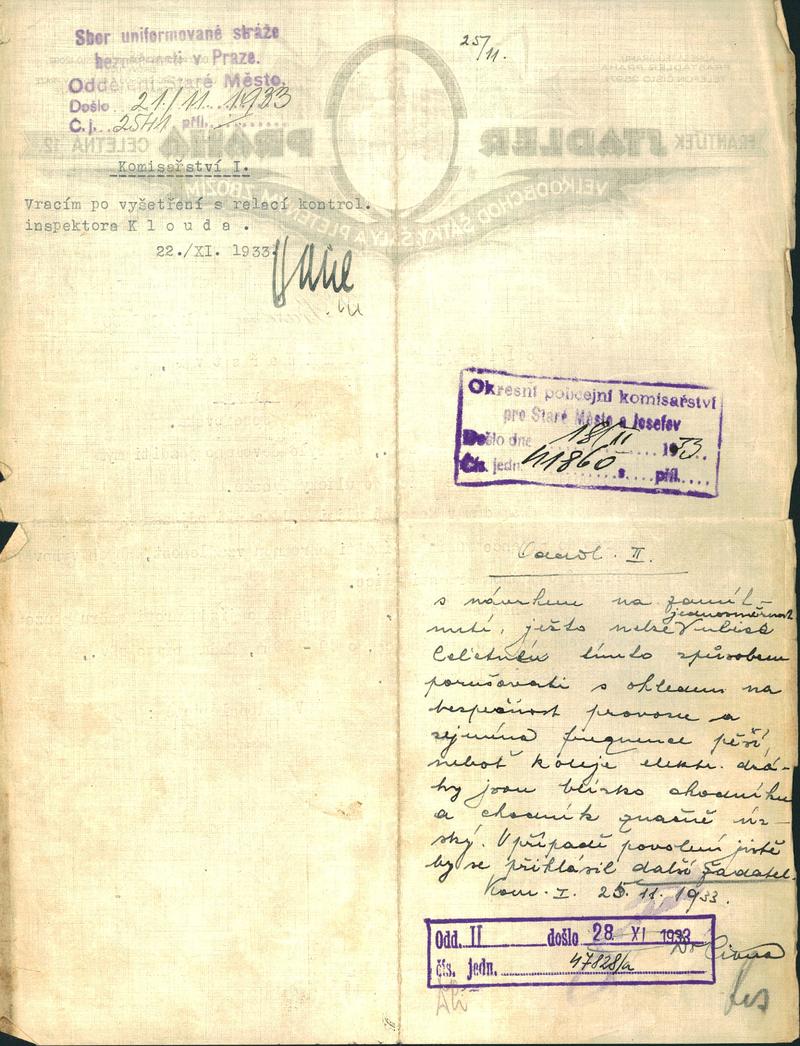 Sbor uniformované stráže
bezpečnosti v Praze.
Oddělení Staré Město.
Došlo 21/11 1933
Č.j. 2541 příl.
25/11.
FRANTIŠEK STADLER PRAHA CELETNÁ 12
VELKOOBCHOD ŠÁTKY, ŠÁLY A PLETENÝM ZBOŽÍM
Komisařství I.
Vracím po vyšetření s relací kontrol.
inspektora Klouda.
22./XI. 1933.
Okresní policejní komisařství
pro Staré Město a Josefov
Došlo dne 18/11 1933
Čís. jedn. 41860 s. příl.
Odděl. II.
s návrhem na zamít-
nutí, ježto nelze v ulici jednosměrnost
Celetnou tímto způsobem
porušovati s ohledem na
bezpečnost provozu a
zejména frequence pěší,
neboť koleje elektr. drá-
hy jsou blízko chodníku
a chodník značně úz-
ký. V případě povolení jistě
by se přihlásil další žadatel.
Kom. I. 25. 11. 1933.
Odd. II došlo 28 XI 1933
čís. jedn. 47828/a